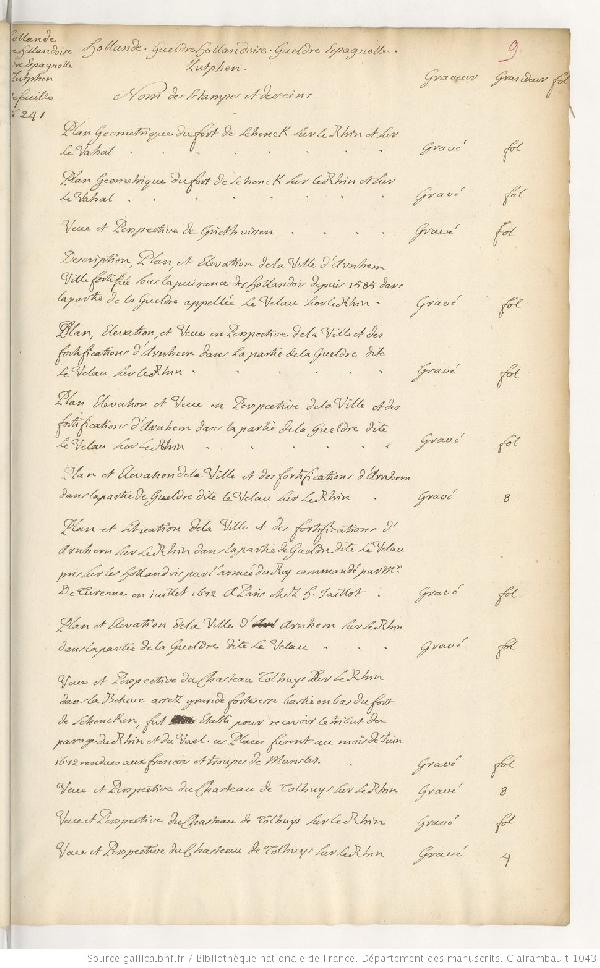 ollande
Hollandoise
Espagnolle
Zutphen
241
Hollande. Gueldre Hollandoise. Gueldre Espagnolle.
Zutphen.
9.
Noms des Estampes et desseins
Graveur Grandeur fol
Plan Geometrique du fort de Schenck sur le Rhin et sur
le Vahal . . . . . Gravé fol
Plan Geometrique du fort de Schenck sur le Rhin et sur
le Vahal . . . . . Gravé fol
Veue et Perspective de . . . . Gravé fol
Description, Plan, et Elevation de la Ville d'Arnhem
Ville fortifiée sous la puissance des Hollandois depuis 1585 dans
la partie de la Gueldre appellée le Velau sur le Rhin . Gravé fol
Plan, Elevation, et Veue en Perspective de la Ville et des
fortifications d'Arnhem dans la partie de la Gueldre dite
le Velau sur le Rhin . . . . Gravé fol
Plan Elevation et Veue en Perspective de la Ville et des
fortifications d'Arnhem dans la partie de la Gueldre dite
le Velau sur le Rhin . . . . Gravé fol
Plan et Elevation de la Ville et des fortifications d'Arnhem
dans la partie de Gueldre dite le Velau sur le Rhin . Gravé 8
Plan et situation de la Ville et des fortifications d'
Arnhem sur le Rhin dans la partie de Gueldre dite le Velau
pris sur les Hollandois par l'armée du Roy commandé par Mr.
De Turenne en juillet 1672 A Paris chez H. Jaillot . Gravé fol
Plan et Elevation de la Ville d' Arnhem sur le Rhin
dans la partie de la Gueldre dite le Velau . . . Gravé fol
Veue et Perspective du Chasteau Tolhuys sur le Rhin
dans la Betuue assez grande forteresse bastie en bas du fort
de Schencken, fut establi pour recevoir le tribut du
passage du Rhin et du Vael. ces Places furent au mois de Juin
1672 rendues aux francois et troupes de Munster. Gravé fol
Veue et Perspective du Chasteau de Tolhuys sur le Rhin Gravé 8
Veue et Perspective du Chasteau de Tolhuys sur le Rhin Gravé fol
Veue et Perspective du Chasteau de Tolhuys sur le Rhin Gravé 4
Source gallica.bnf.fr / Bibliothèque nationale de France. Département des manuscrits. Clairambault 1043